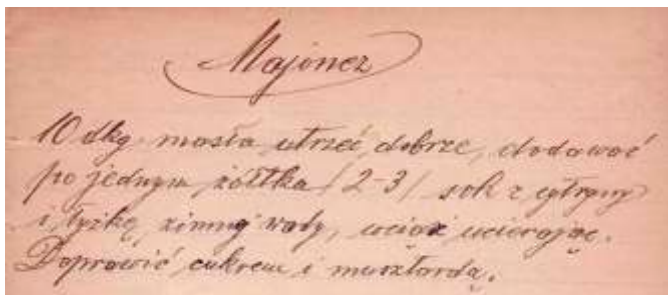 Majonez
10 dkg. masła utrzeć dobrze, dodawać
po jednym żółtka /2-3/ sok z cytryny
i łyżkę zimnej wody, wciąż ucierając.
Doprawić cukrem i musztardą.